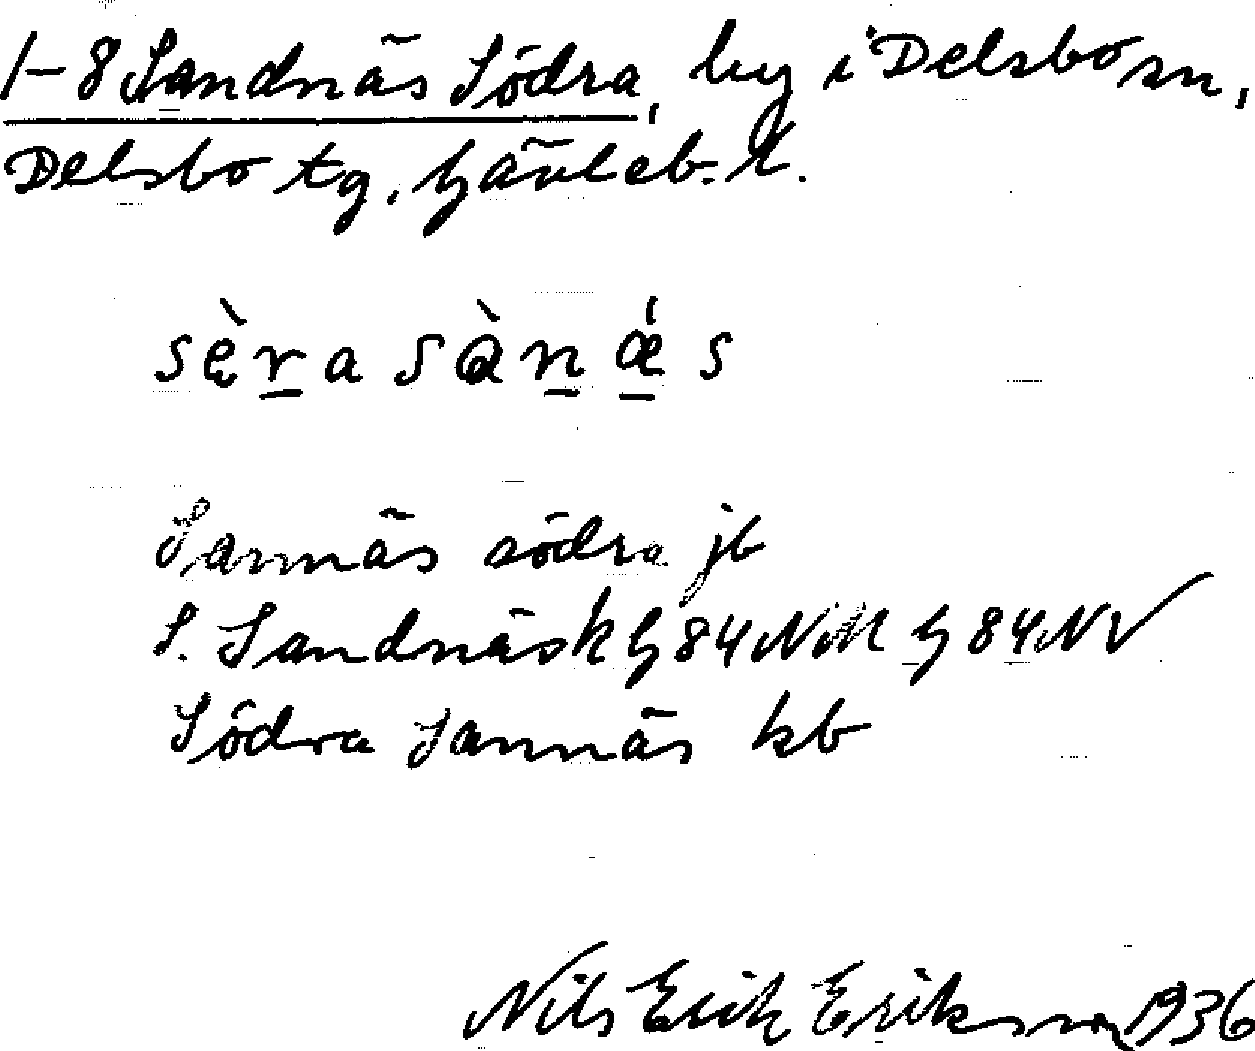 1-8 Sandnäs Södra, by i Delsbo sn,
Delsbo tg, Gävleb. l.
sèra sànǽs
Sannäs södra jb
S. Sandnäs k G 84 NM G 84 NV
Södra Sannäs kb
Nils Erik Eriksson 1936